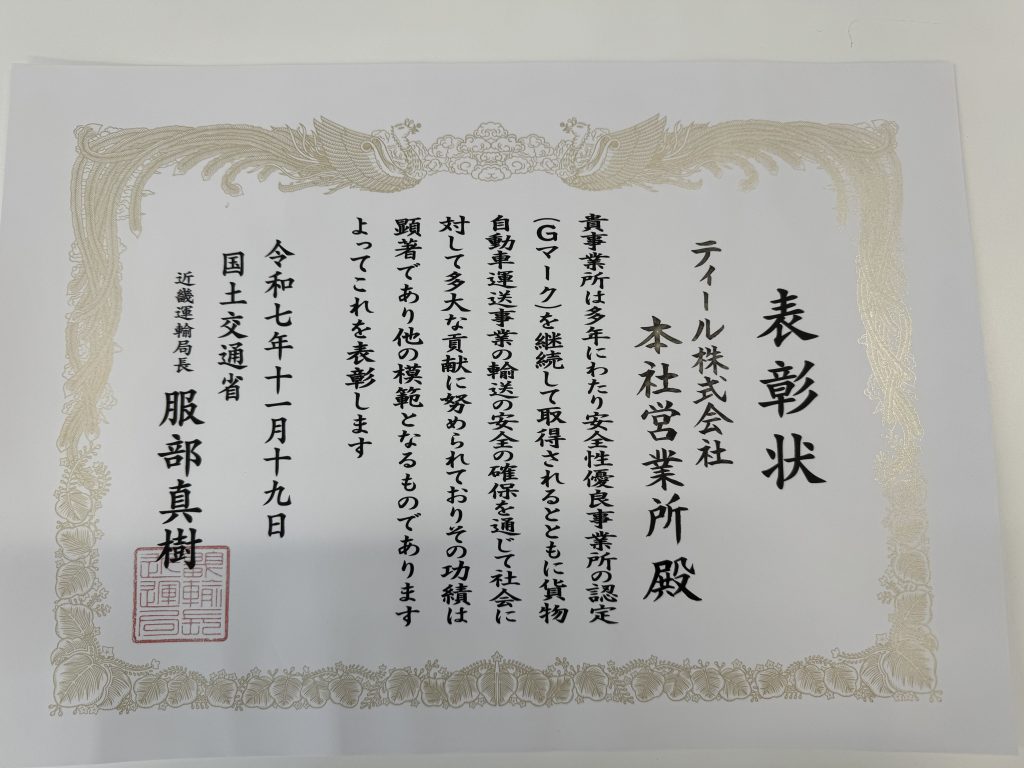 表彰状
ティール株式会社
本社営業所 殿
貴事業所は多年にわたり安全性優良事業所の認定
(Gマーク)を継続して取得されるとともに貨物
自動車運送事業の輸送の安全の確保を通じて社会に
対して多大な貢献に努められておりその功績は
顕著であり他の模範となるものであります
よってこれを表彰します
令和七年十一月十九日
国土交通省
近畿運輸局長 服部真樹